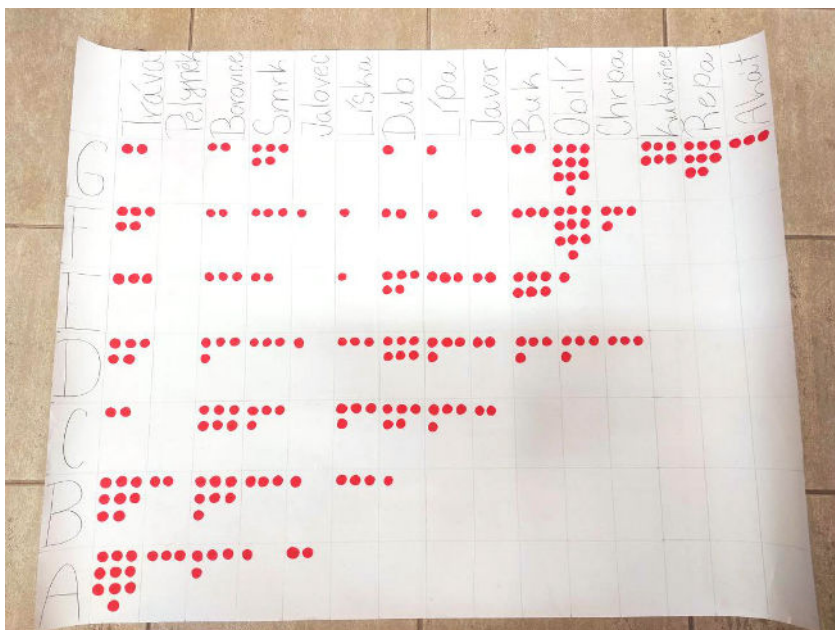 Tráva
Pelyněk
Borovice
Smrk
Jalovec
Líska
Dub
Lípa
Javor
Buk
Obilí
Chrpa
Kukuřice
Řepa
G
D
C
B
A